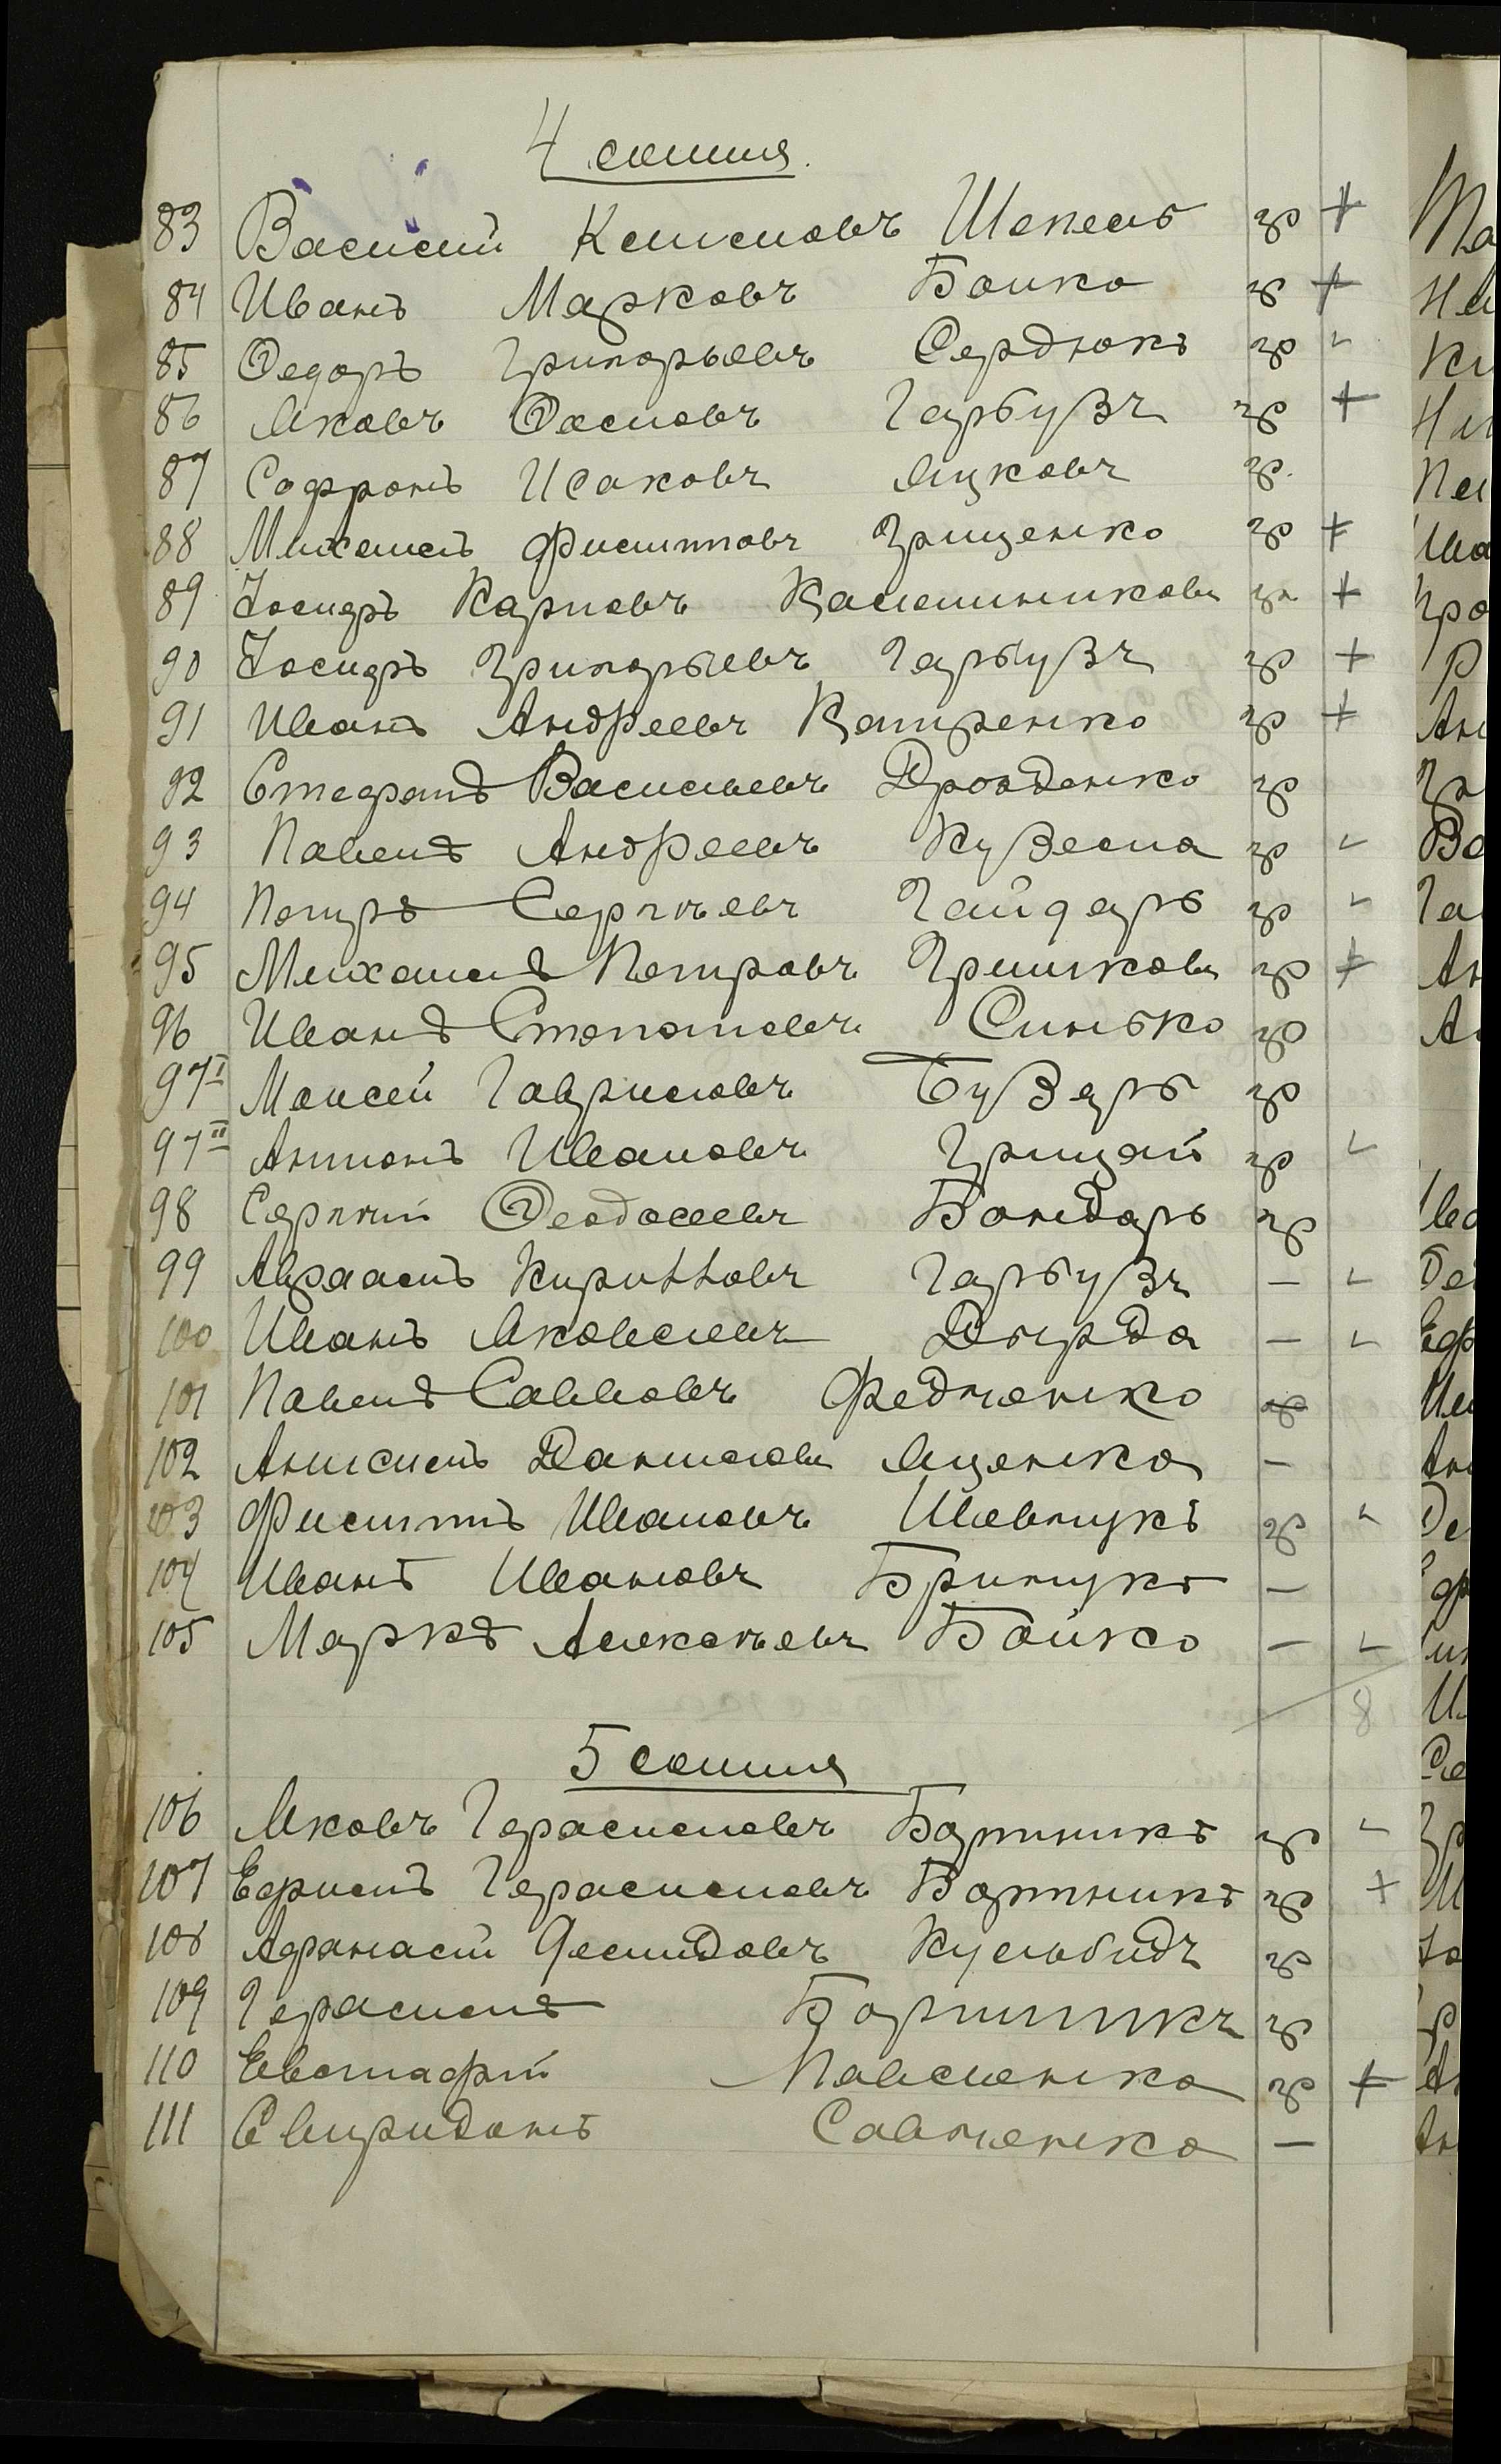 4 сотня.
83 Василий Климовъ Шекель гр +
84 Иванъ Марковъ Бойко гр +
85 Ѳедоръ Григорьевъ Сердюкъ гр "
86 Яковъ Ѳомовъ Гарбузъ гр +
87 Софронъ Исаковъ Яцковъ гр.
88 Михаилъ Филиповъ Грищенко гр +
89 Іосифъ Карповъ Калашниковъ гр +
90 Іосифъ Григорьевъ Гарбузъ гр +
91 Иванъ Андреевъ Капренко гр +
92 Стефанъ Васильевъ Дрозденко гр
93 Павелъ Андреевъ Кузема гр "
94 Петръ Сергѣевъ Гайдаръ гр "
95 Михаилъ Петровъ Гришковъ гр +
96 Иванъ Степановъ Синько гр
97 I Моисей Гавриловъ Бузаръ гр
97 II Антонъ Ивановъ Грицай гр "
98 Сергѣй Ѳеодосеевъ Бондарь гр
99 Авраамъ Кирилловъ Гарбузъ — "
100 Иванъ Яковлевъ Дырда — "
101 Павелъ Саввовъ Федченко гр
102 Анисимъ Даниловъ Яценко —
103 Филиппъ Ивановъ Шевчукъ гр "
104 Иванъ Ивановъ Бричукъ —
105 Маркъ Алексѣевъ Бойко — "
8
5 сотня
106 Яковъ Герасимовъ Бортникъ гр "
107 Ефимъ Герасимовъ Бортникъ гр +
108 Афанасій Демидовъ Кульбидъ гр
109 Герасимъ Бортникъ гр
110 Евстафій Павленко гр +
111 Свиридонъ Савченко —